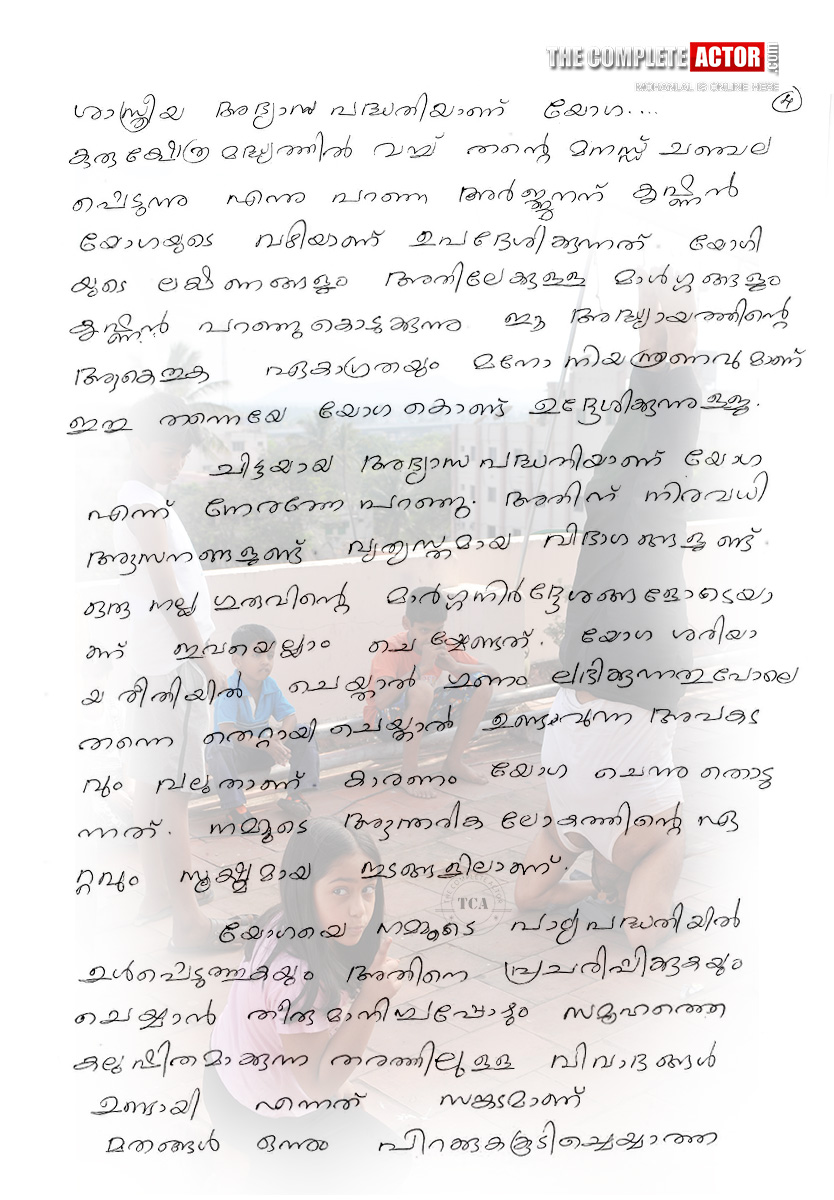 THE COMPLETE ACTOR .COM
MOHANLAL IS ONLINE HERE
4
ശാസ്ത്രീയ അഭ്യാസ പദ്ധതിയാണ് യോഗ....
കുരുക്ഷേത്ര മദ്ധ്യത്തിൽ വച്ച് തന്റെ മനസ്സ് ചഞ്ചല
പ്പെടുന്നു എന്നു പറഞ്ഞ അർജ്ജുനന് കൃഷ്ണൻ
യോഗയുടെ വഴിയാണ് ഉപദേശിക്കുന്നത്. യോഗി
യുടെ ലക്ഷണങ്ങളും അതിലേക്കുള്ള മാർഗ്ഗങ്ങളും
കൃഷ്ണൻ പറഞ്ഞു കൊടുക്കുന്നു ഈ അദ്ധ്യായത്തിന്റെ
ആകെത്തുക ഏകാഗ്രതയും മനോനിയന്ത്രണവുമാണ്
ഇതു തന്നെയേ യോഗ കൊണ്ട് ഉദ്ദേശിക്കുന്നുള്ളൂ.
ചിട്ടയായ അഭ്യാസ പദ്ധതിയാണ് യോഗ
എന്ന് നേരത്തേ പറഞ്ഞു. അതിന് നിരവധി
ആസനങ്ങളുണ്ട് വ്യത്യസ്തമായ വിഭാഗങ്ങളുണ്ട്.
ഒരു നല്ല ഗുരുവിന്റെ മാർഗ്ഗനിർദ്ദേശങ്ങളോടെയാ
ണ് ഇവയെല്ലാം ചെയ്യേണ്ടത്. യോഗ ശരിയാ
യ രീതിയിൽ ചെയ്താൽ ഗുണം ലഭിക്കുന്നതുപോലെ
തന്നെ തെറ്റായി ചെയ്താൽ ഉണ്ടാവുന്ന അപകട
വും വലുതാണ്. കാരണം യോഗ ചെന്നു തൊടു
ന്നത്. നമ്മുടെ ആന്തരിക ലോകത്തിന്റെ ഏ
റ്റവും സൂക്ഷ്മമായ ഇടങ്ങളിലാണ്.
TCA
യോഗയെ നമ്മുടെ പാഠ്യപദ്ധതിയിൽ
ഉൾപ്പെടുത്തുകയും അതിനെ പ്രചരിപ്പിക്കുകയും
ചെയ്യാൻ തീരുമാനിച്ചപ്പോഴും സമൂഹത്തെ
കലുഷിതമാക്കുന്ന തരത്തിലുള്ള വിവാദങ്ങൾ
ഉണ്ടായി എന്നത് സങ്കടമാണ്
മതങ്ങൾ ഒന്നും പിറക്കുകകൂടിച്ചെയ്യാത്ത